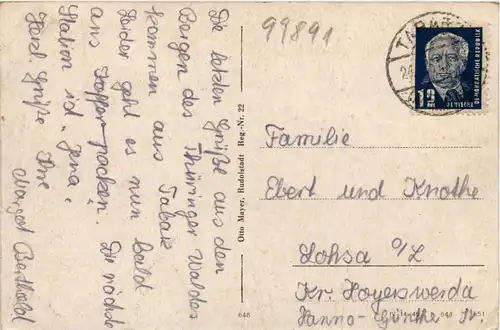 99891
Die letzten Grüße aus den
Bergen des Thüringer Waldes
kommen aus Tabarz.
Leider geht es nun bald
ans Koffer packen. Die nächste
Station ist "Jena".
Herzl. Grüße Ihre
Margot Berthold
Otto Mayer, Rudolstadt Reg.-Nr. 22
646
TABARZ
12
DEUTSCHE
DEMOKRATISCHE REPUBLIK
Familie
Ebert und Knothe
Lohsa O/L
Kr. Hoyerswerda
Hanno-Günther Str.